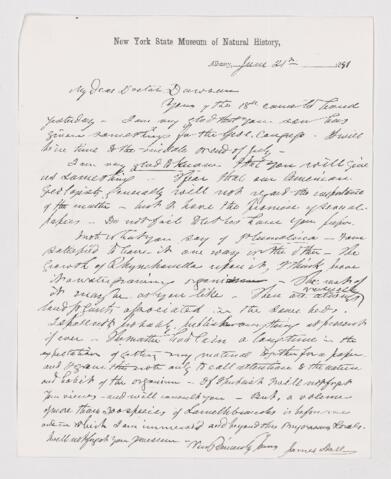 New York State Museum of Natural History,
Albany, June 21st 1881
My dear Doctor Dawson
Yours of the 18th came to hand
yesterday - I am very glad that your son has
given something for the Geol. Congress. It will
be in time to the middle or end of July -
I am very glad to know that you will give
us something. I fear that our American
Geologists generally will not regard the importance
of the matter - but to have the promise of several
papers - Do not fail to let us have your paper.
I note what you say of - I am
satisfied to leave it one way or the other - The
growth of Rhynchonella upon it, I think prove
it a water growing organism - The rest of
it may be as you like - There are always
land plants associated in the same beds.
I shall not probably publish anything at present
if ever - The matter has lain a long time in the
expectation of getting my material together for a paper
and to call attention to the nature
and habit of the organism - If I publish I will not forget
your views - and will consult you - But, a volume
of more than 200 species of Lamellibranchs is before me
in which I am immersed and beyond this
I will not forget your museum - Very Sincerely Yours James Hall